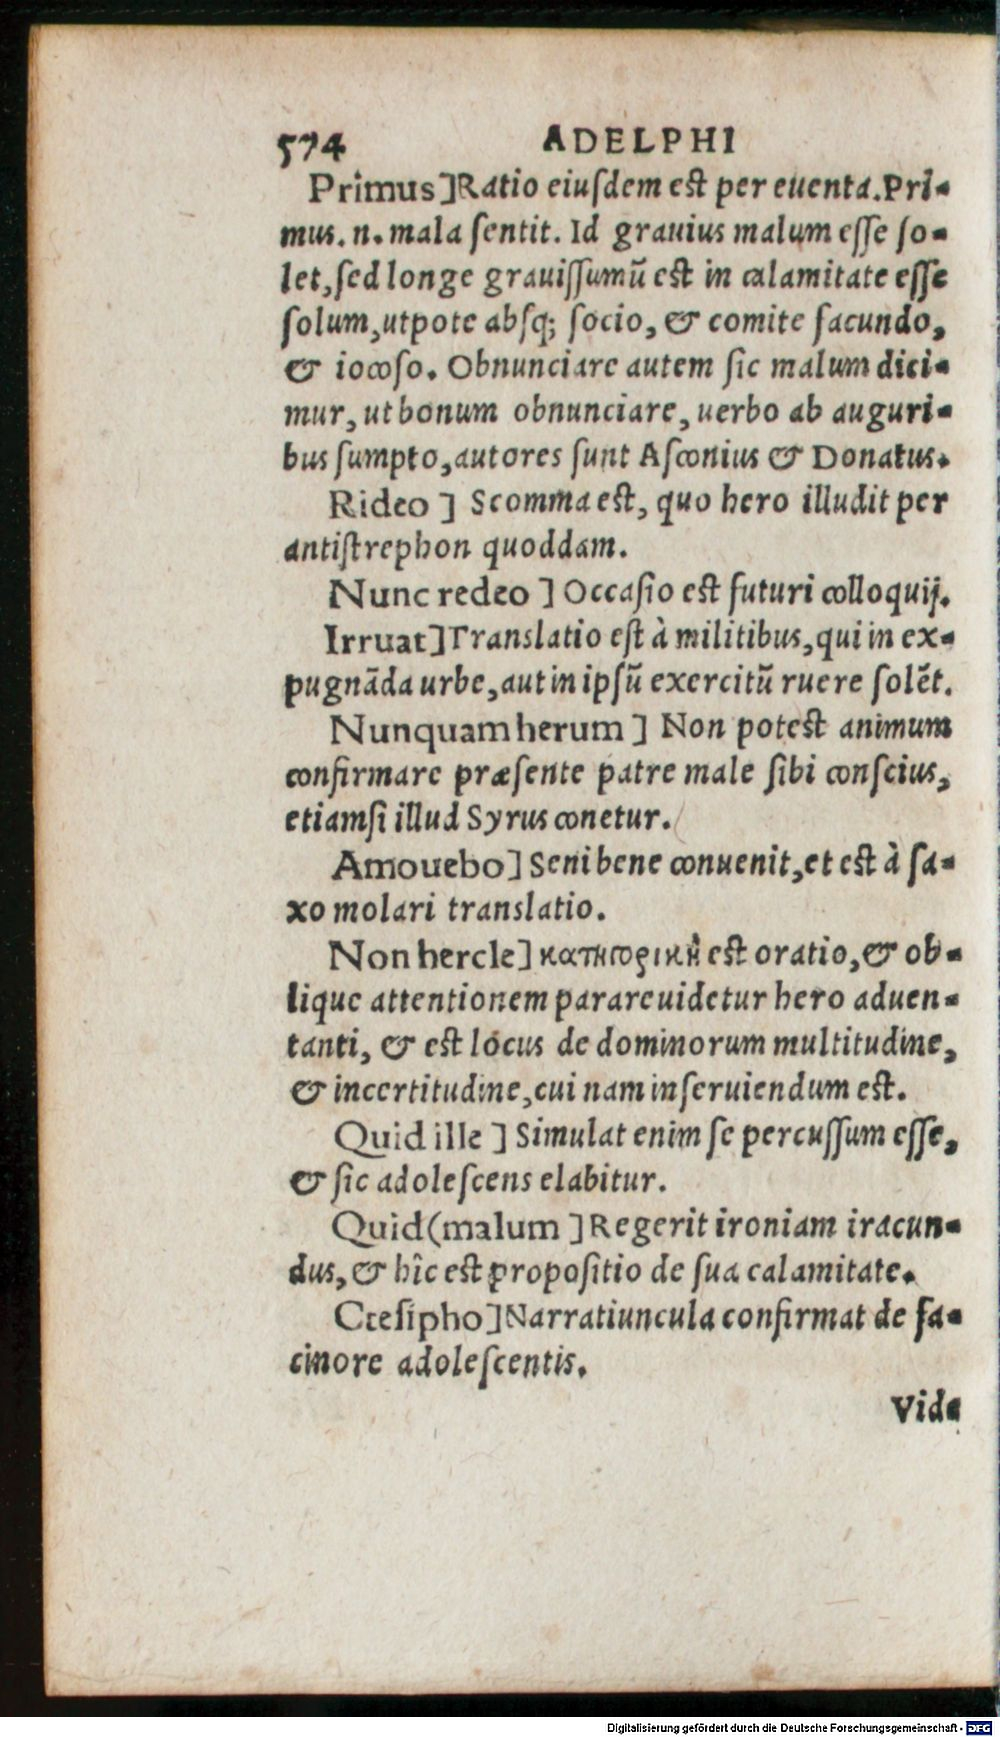 574 ADELPHI
Primus] Ratio eiuſdem est per euenta. Pri-
mus. n. mala ſentit. Id grauius malum eſſe ſo-
let, ſed longe grauiſſumũ est in calamitate eſſe
ſolum, utpote abſq; ſocio, & comite facundo,
& iocoſo. Obnunciare autem ſic malum dici-
mur, ut bonum obnunciare, uerbo ab auguri-
bus ſumpto, autores ſunt Aſconius & Donatus.
Rideo ] Scomma est, quo hero illudit per
antiſtrephon quoddam.
Nunc redeo ] Occaſio est futuri colloquij.
Irruat] Translatio eſt à militibus, qui in ex-
pugnãda urbe, aut in ipſũ exercitũ ruere ſolẽt.
Nunquam herum ] Non potest animum
confirmare præſente patre male ſibi conſcius,
etiamſi illud Syrus conetur.
Amouebo] Seni bene conuenit, et est à ſa-
xo molari translatio.
Non hercle] κατηγορικὴ est oratio, & ob-
lique attentionem parare uidetur hero aduen-
tanti, & est locus de dominorum multitudine,
& incertitudine, cui nam inſeruiendum est.
Quid ille ] Simulat enim ſe percuſſum eſſe,
& ſic adoleſcens elabitur.
Quid (malum ] Regerit ironiam iracun-
dus, & hîc est propoſitio de ſua calamitate.
Cteſipho] Narratiuncula confirmat de fa-
cinore adoleſcentis.
Vide
Digitalisierung gefördert durch die Deutsche Forschungsgemeinschaft - DFG